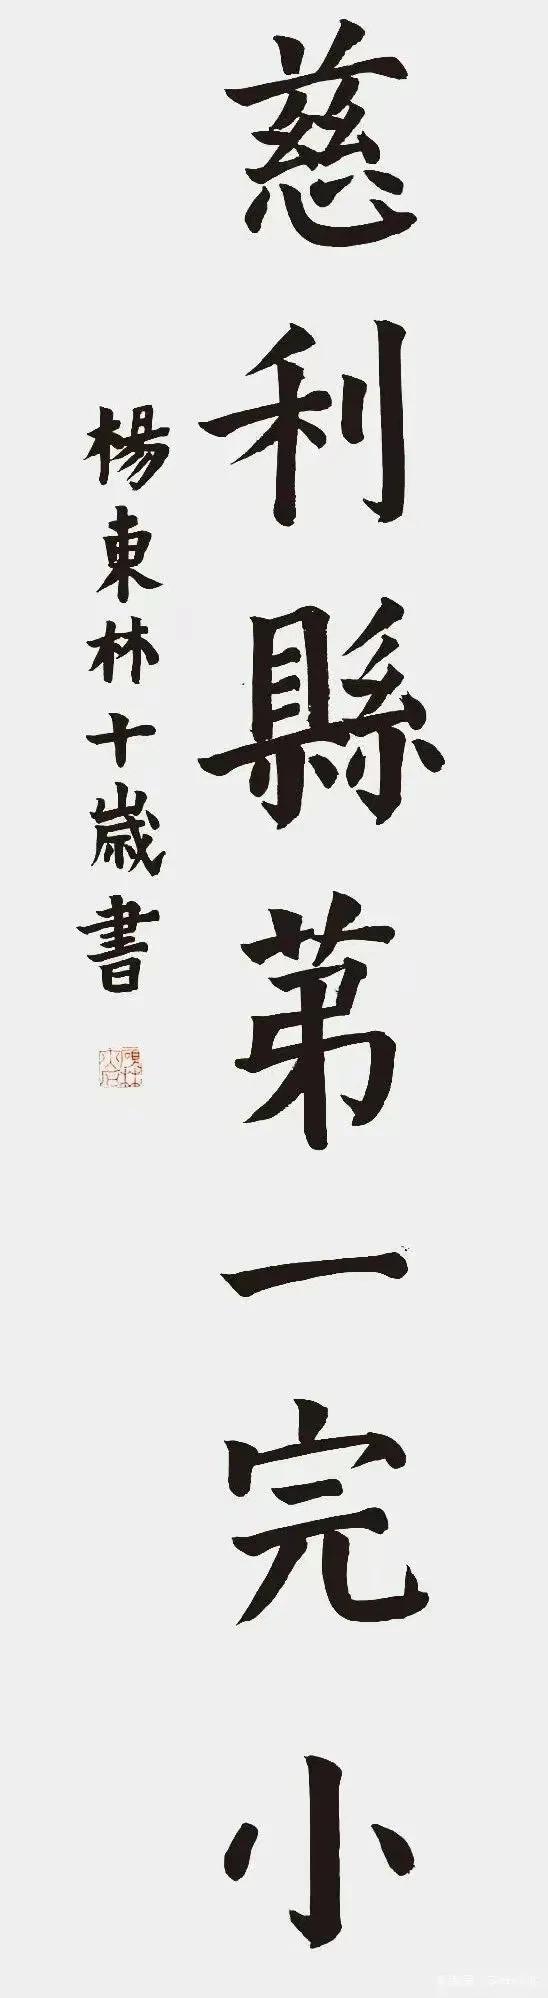 慈利縣苐一完小
楊東林十歲書